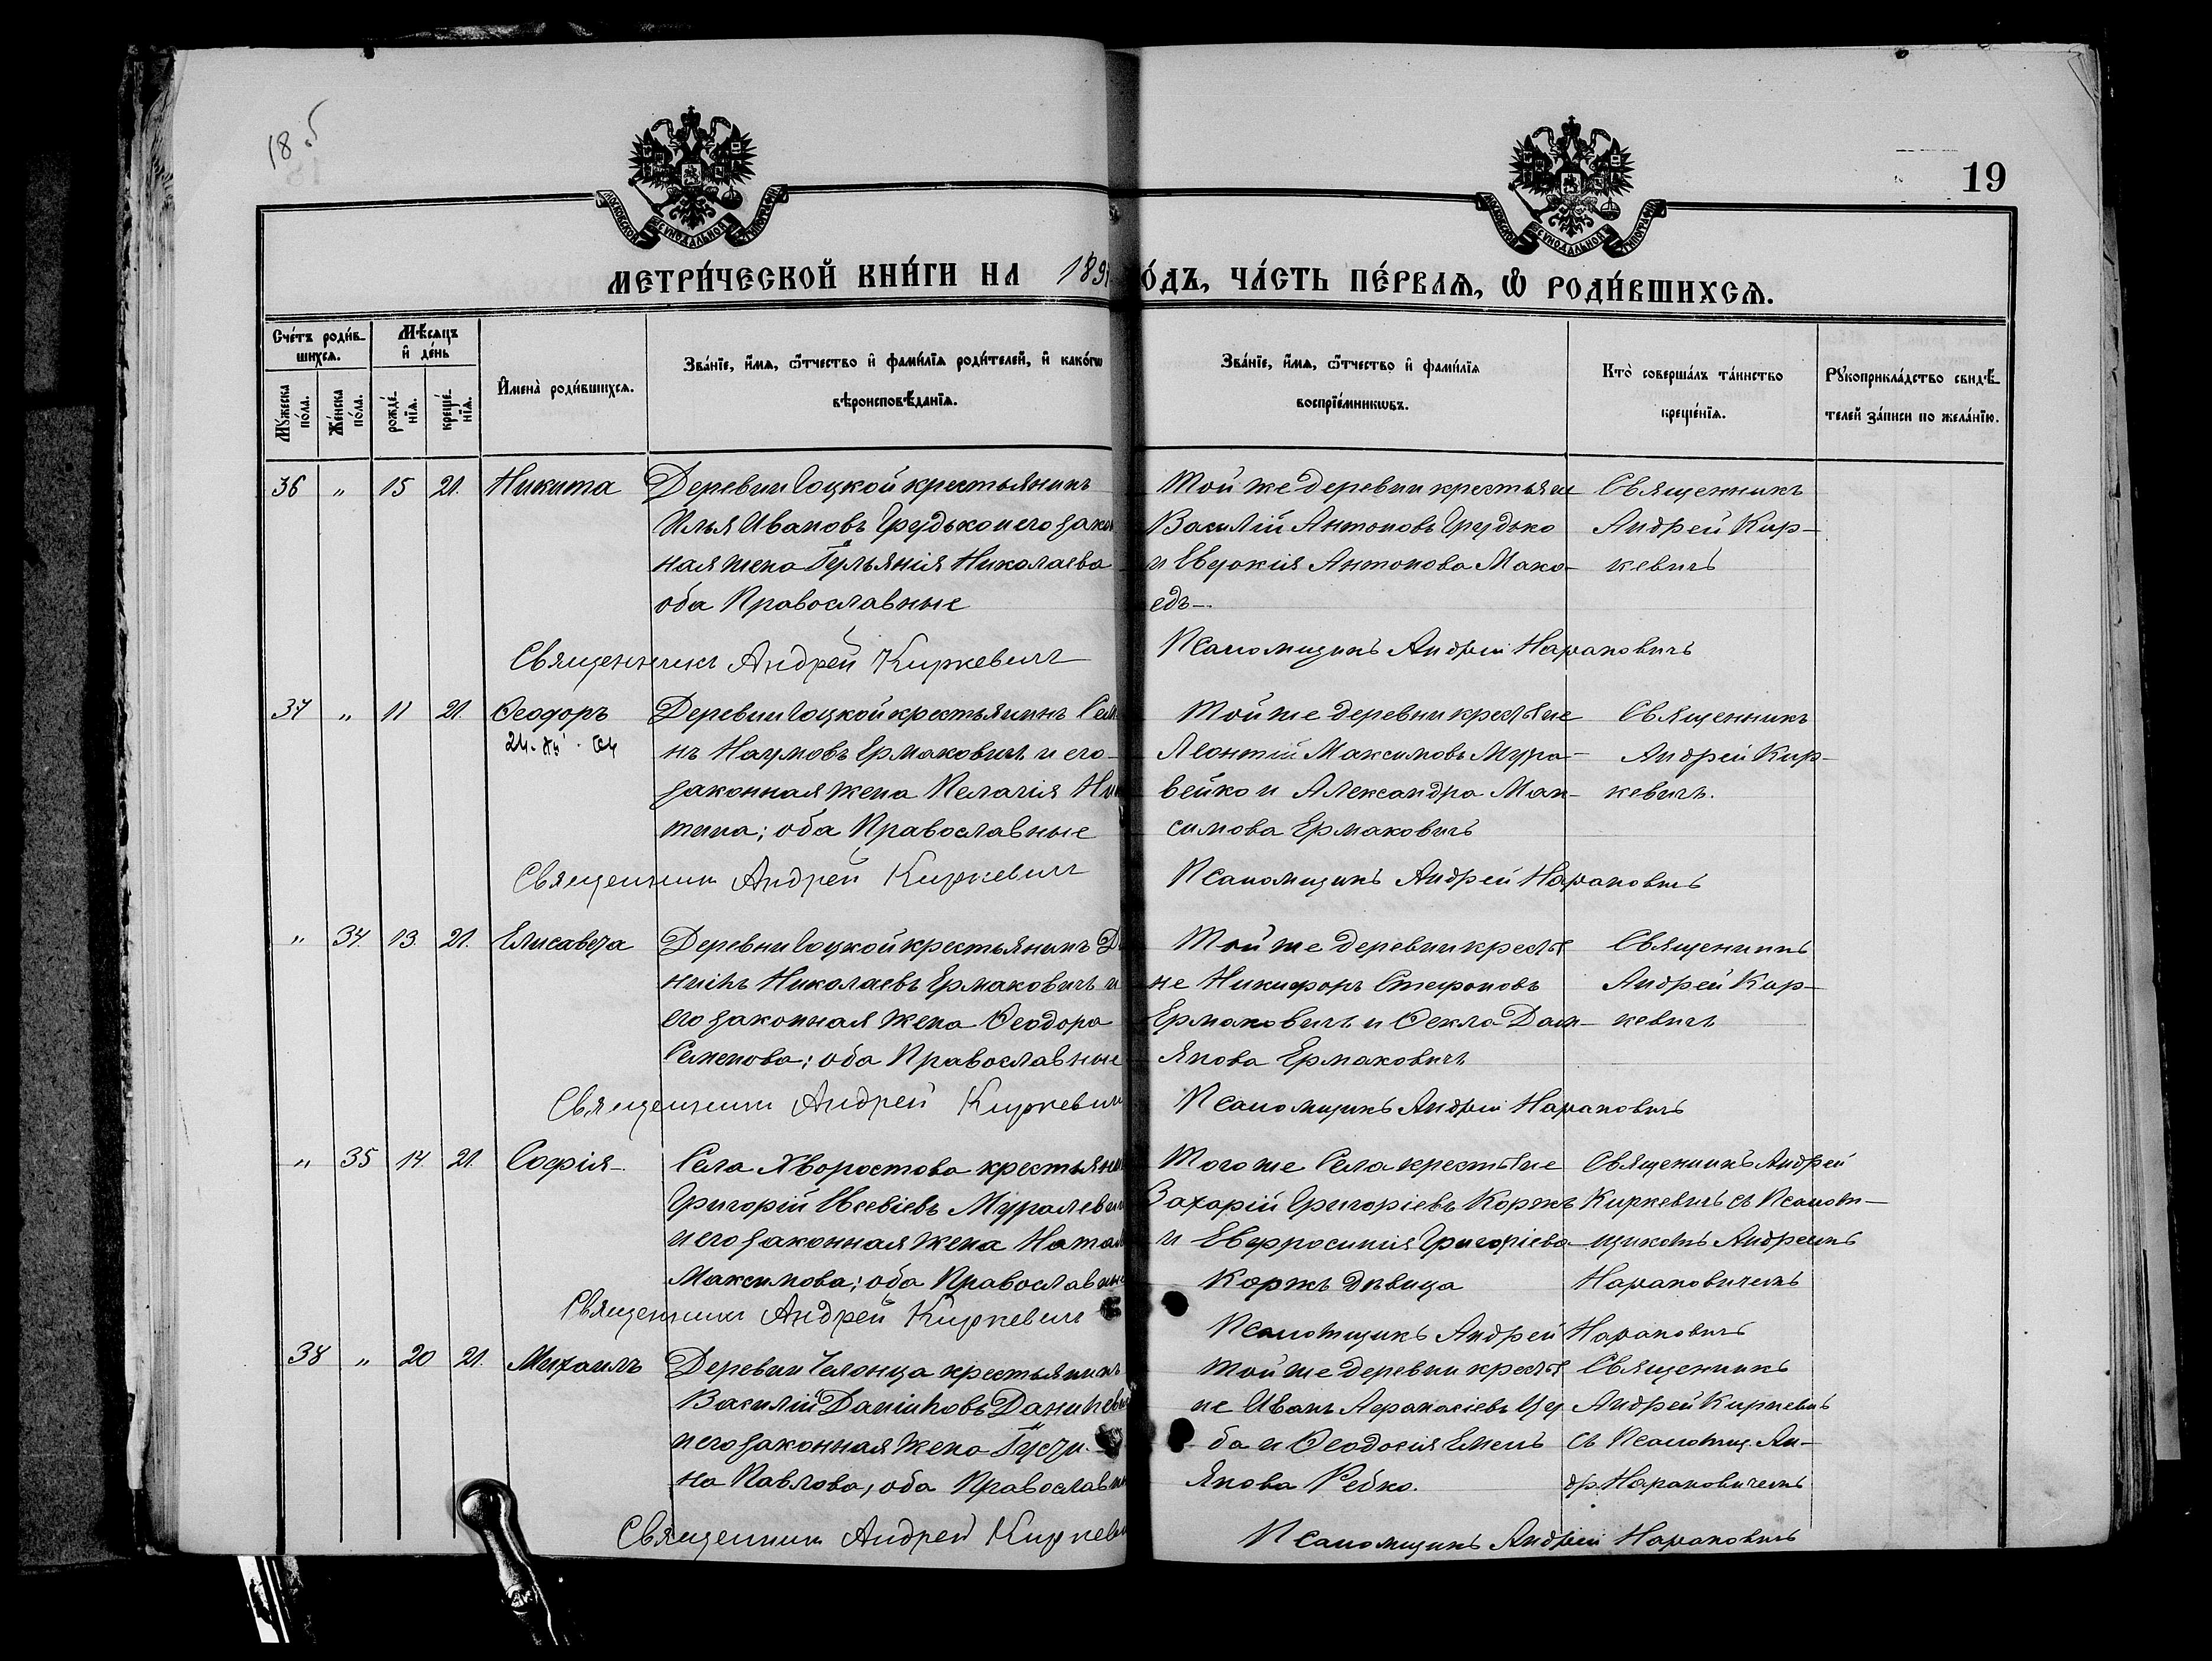 18
19
МОСКОВСКОЙ СѴНОДАЛЬНОЙ ТИПОГРАФІИ
МОСКОВСКОЙ СѴНОДАЛЬНОЙ ТИПОГРАФІИ
МЕТРИ́ЧЕСКОЙ КНИ́ГИ НА 189
О́ДЪ, ЧА́СТЬ ПЕ́РВАѦ, Ѡ РОДИ́ВШИХСѦ.
Сче́тъ роди́в-
шихсѧ.
Мѣ́сѧцъ
и де́нь
Мꙋ́жеска
по́ла.
Же́нска
по́ла.
рожде́-
нїѧ.
креще́-
нїѧ.
Имена̀ роди́вшихсѧ.
Зва́нїе, и́мѧ, ѻ́тчество и фами́лїѧ роди́телей, и како́гѡ
вѣроисповѣ́данїѧ.
Зва́нїе, и́мѧ, ѻ́тчество и фами́лїѧ
воспрїе́мникѡвъ.
Кто̀ соверша́лъ та́инство
креще́нїѧ.
Рꙋкоприкла́дство свидѣ́-
телей за́писи по жела́нїю.
36 " 15 21. Никита Деревни Соцкой крестьянинъ
Илья Ивановъ Грудько и его закон
ная жена Іульянія Николаева
оба Православные
Той же деревни крестьяне
Василій Антоновъ Грудько
и Евдокія Антонова Мако-
едъ-.
Священникъ
Андрей Кир-
кевичъ
Священникъ Андрей Киркевичъ
Псаломщикъ Андрей Нарановичъ
37 " 11 21. Ѳеодоръ Деревни Соцкой крестьянинъ Сем
нъ Наумовъ Ермаковичъ и его
законная жена Пелагія Ни
тина; оба Православные
Той же деревни крестьяне
Леонтій Максимовъ Мура-
вейко и Александра Мак-
симова Ермаковичъ
Священникъ
Андрей Кир-
кевичъ.
Священникъ Андрей Киркевичъ
Псаломщикъ Андрей Нарановичъ
" 34 13. 21. Елисавета Деревни Соцкой крестьянинъ Да
ніилъ Николаевъ Ермаковичъ и
его законная жена Ѳеодора
Семенова; оба Православные
Той же деревни крестья
не Никифоръ Стефановъ
Ермаковичъ и Ѳекла Дам-
янова Ермаковичъ
Священникъ
Андрей Кир-
кевичъ
Священникъ Андрей Киркевичъ
Псаломщикъ Андрей Нарановичъ
" 35 14 21. Софія Села Хворостова крестьянин
Григорій Евсевіевъ Муралевич
и его законная жена Натал
Максимова; оба Православные
Того же Села крестьяне
Захарій Григоріевъ Коржъ
и Евфросинія Григоріева
Коржъ дѣвица
Священникъ Андрей
Киркевичъ съ Псалом-
щикомъ Андреемъ
Нарановичемъ
Священникъ Андрей Киркевичъ
Псаломщикъ Андрей Нарановичъ
38 " 20 21. Михаилъ Деревни Челонца крестьянинъ
Василій Даніиловъ Данилев
и его законная жена Іусти-
на Павлова, оба Православн
Той же деревни крестья
не Иванъ Аѳанасіевъ
ба и Ѳеодосія Емель
янова Редко.
Священникъ
Андрей Киркевичъ
съ Псаломщ. Ан-
др. Нарановичемъ
Священникъ Андрей Киркеви
Псаломщикъ Андрей Нарановичъ